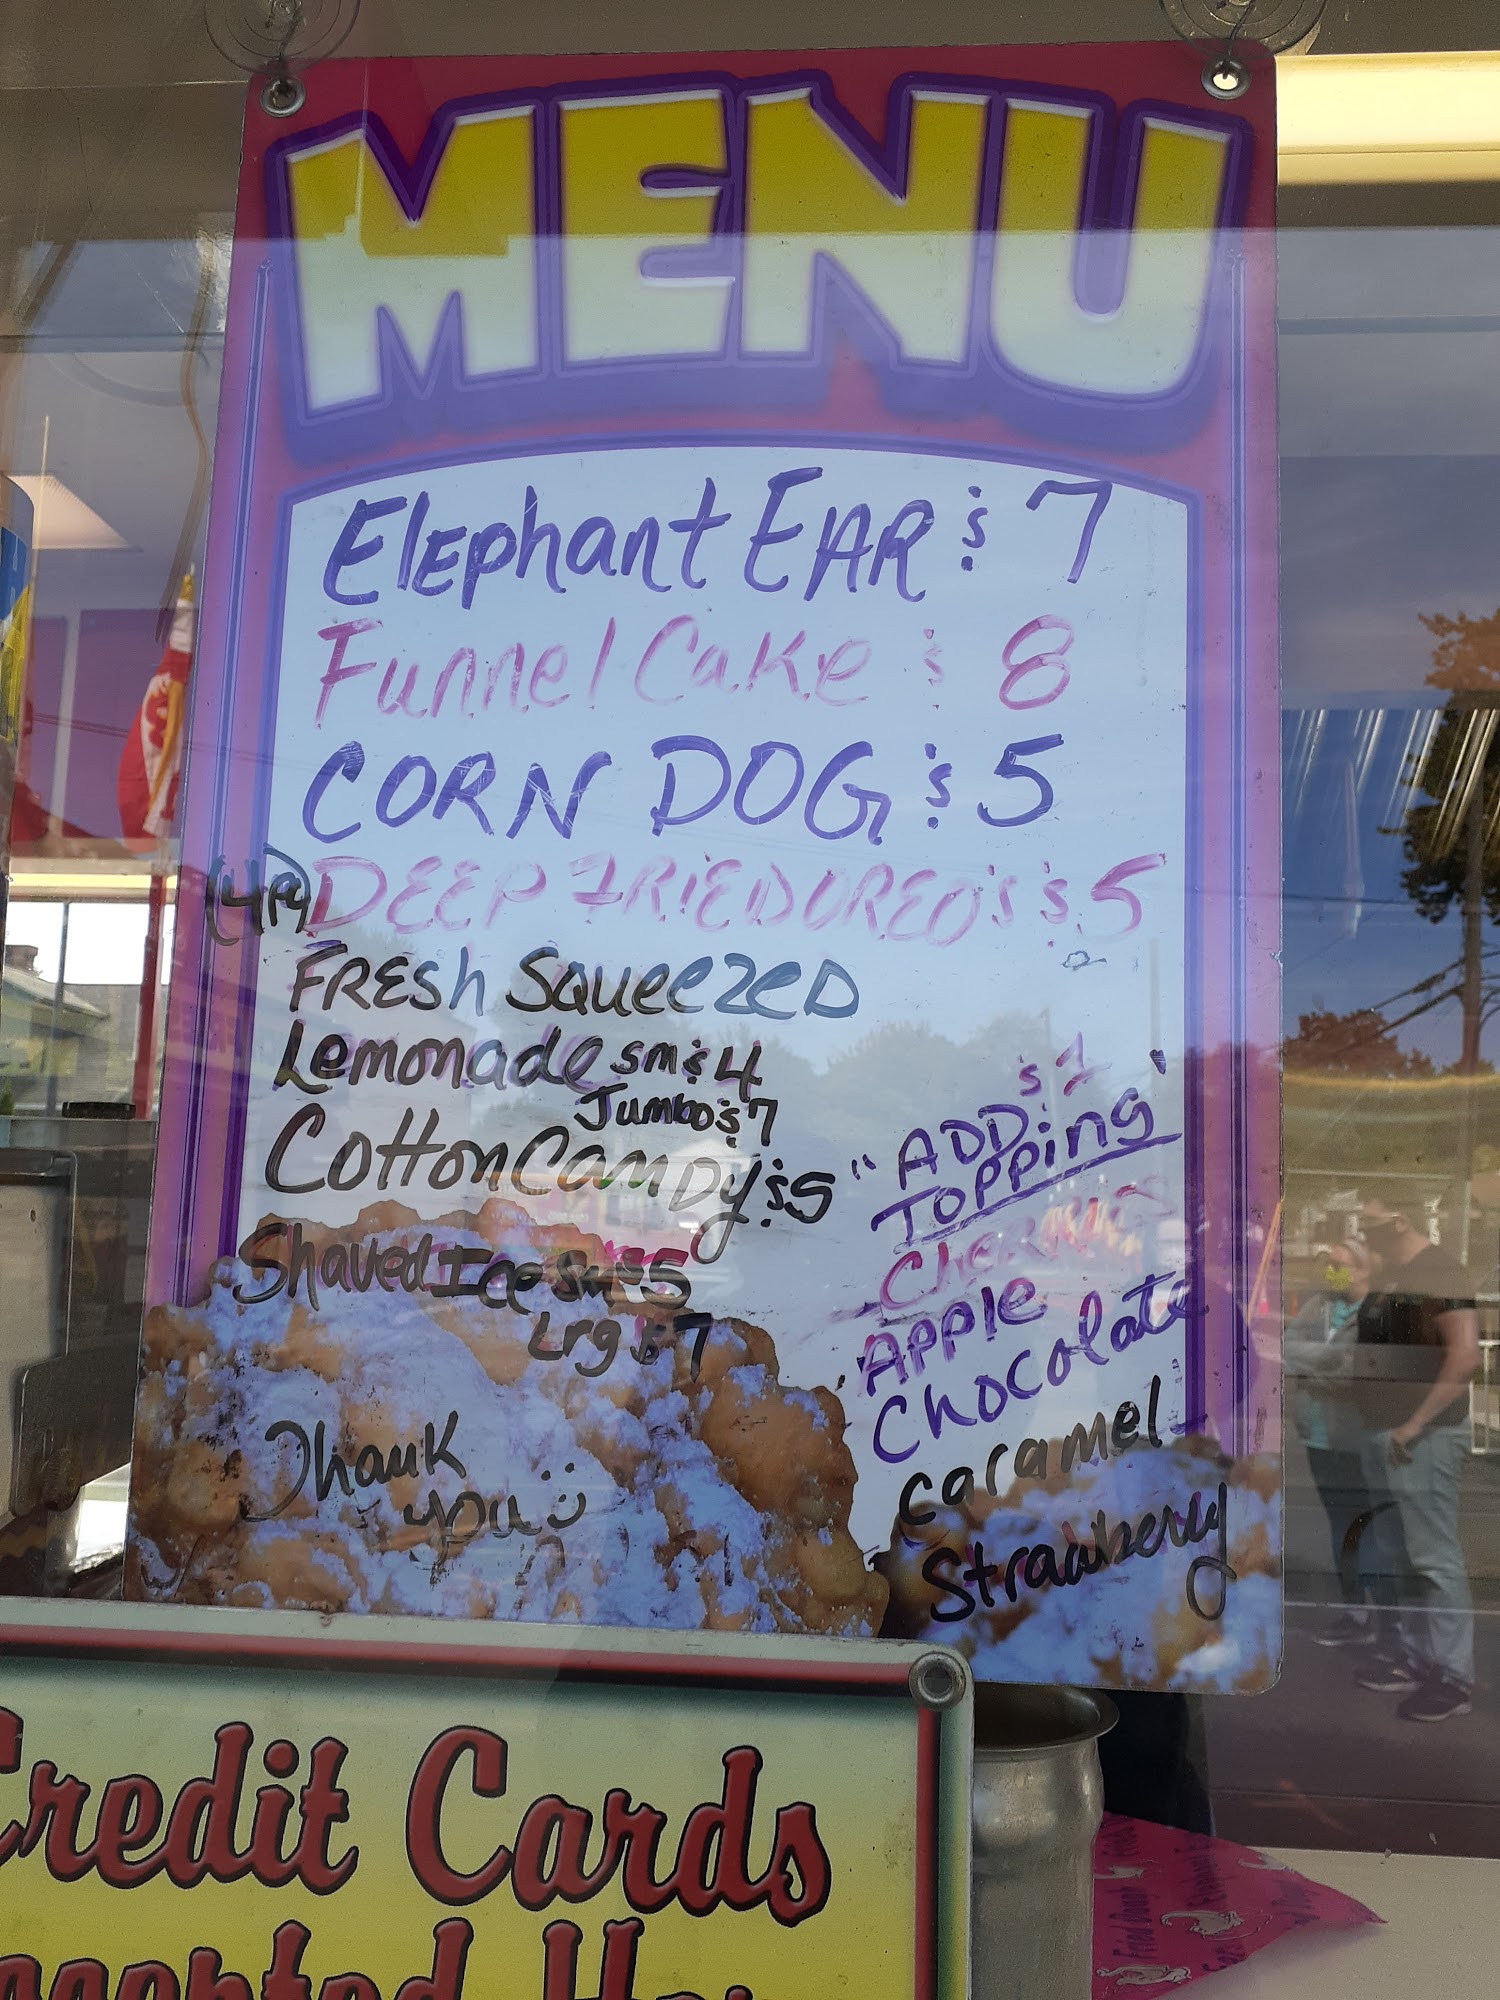 MENU
Elephant EAR $ 7
Funnel Cake $ 8
CORN DOG $ 5
(4pc) DEEP FRIED OREO'S $ 5
FRESh SQueezeD
Lemonade sm $ 4
Jumbo $ 7
Cotton CanDy $ 5
Shaved Ice Sm $ 5
Lrg $ 7
Thank
you
$ 1
"ADD
TOPPing"
CHERRIES
APPLE
Chocolate
caramel
Strawberry
Credit Cards
Accepted Here
Fried Dough